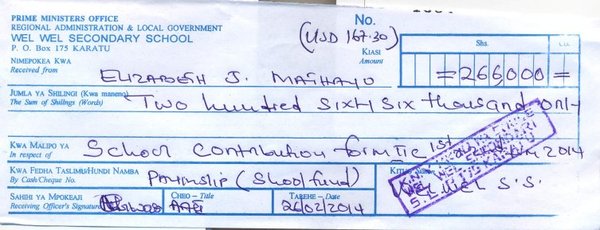 PRIME MINISTERS OFFICE
REGIONAL ADMINISTRATION & LOCAL GOVERNMENT
WEL WEL SECONDARY SCHOOL
P. O. Box 175 KARATU
No.
(USD 167.30)
KIASI
Amount
Shs.
=266,000=
NIMEPOKEA KWA
Received from
ELIZABETH J. MATHAYO
JUMLA YA SHILINGI (Kwa maneno)
The Sum of Shilings (Words)
Two hundred sixty six thousand only
KWA MALIPO YA
In respect of
School contribution form IIC 1st 2014
KWA FEDHA TASLIMU/HUNDI NAMBA
By Cash/Cheque No.
(School fund)
WEL WEL S.S.
SAHIHI YA MPOKEAJI
Receiving Officer's Signature
CHEO - Title
TAREHE - Date
26/02/2014